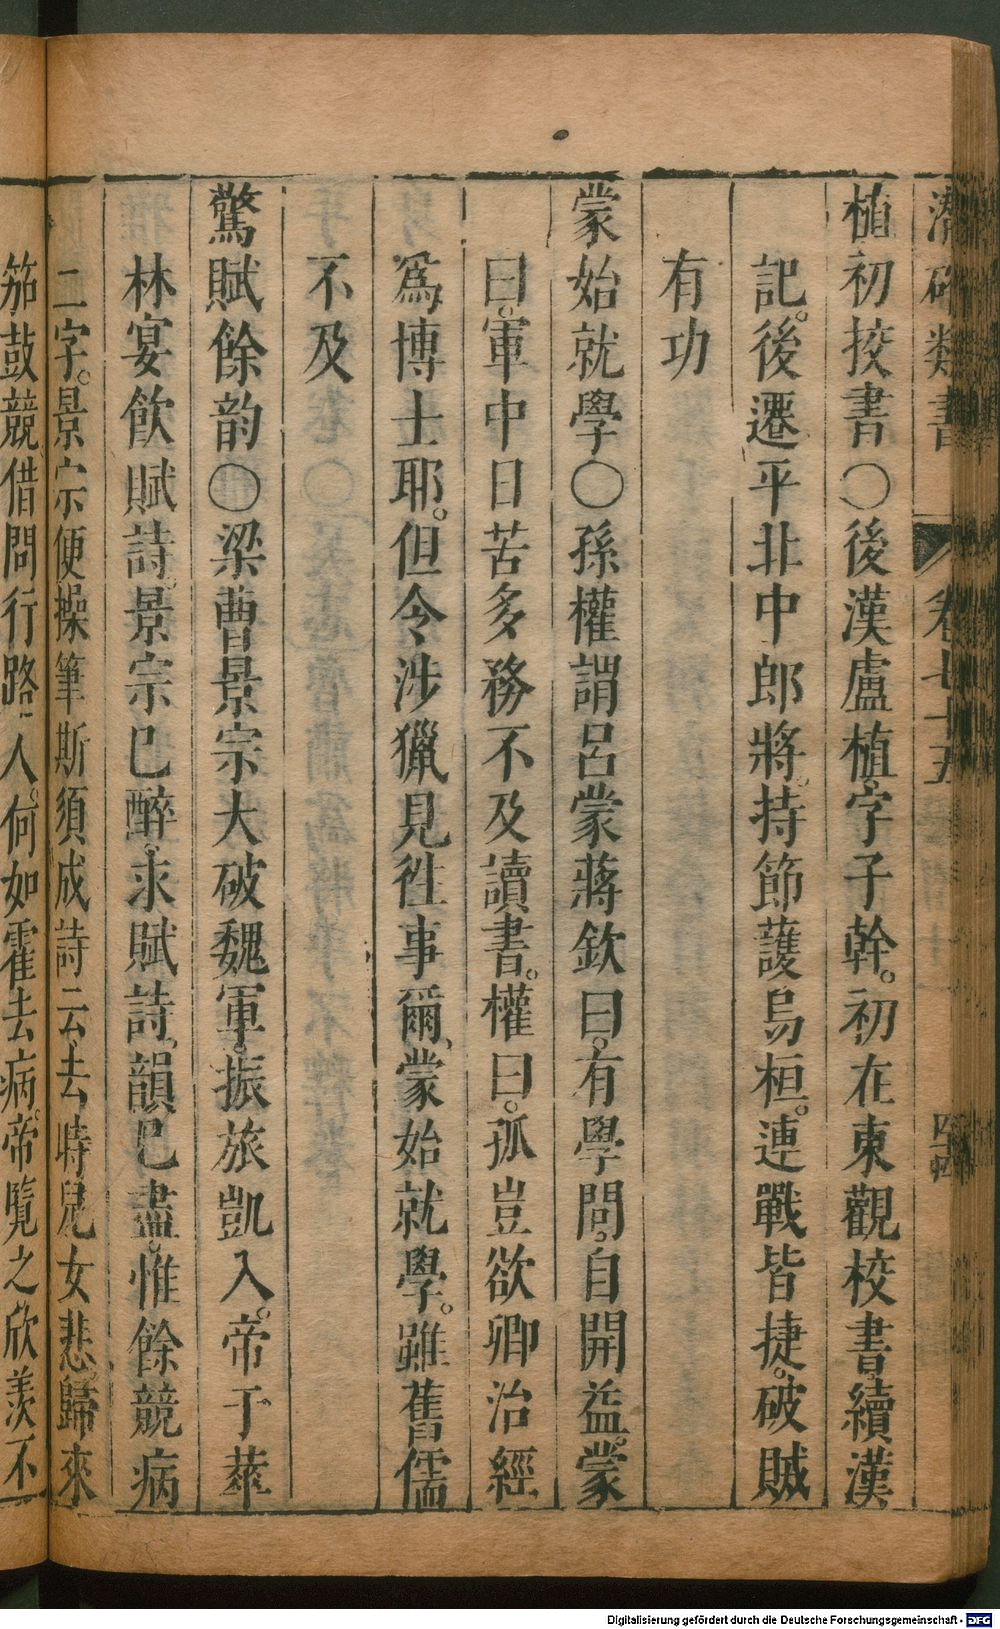 潛確類書 卷七十五 四十四
植初挍書○後漢盧植字子幹。初在東觀校書。續漢
記。後遷平北中郎將。持節護烏桓。連戰皆捷。破賊
有功
蒙始就學○孫權謂呂蒙蔣欽曰。有學問。自開益。蒙
曰。軍中日苦多務不及讀書。權曰。孤豈欲卿治經
爲博士耶。但令涉獵見徃事爾、蒙始就學。雖舊儒
不及
驚賦餘韵○梁曹景宗大破魏軍。振旅凱入。帝于華
林宴飲賦詩。景宗已醉。求賦詩、韻已盡。惟餘競病
二字。景宗便操筆斯須成詩云去時兒女悲。歸來
笳鼓競借問行路人。何如霍去病。帝覽之欣羡不
Digitalisierung gefördert durch die Deutsche Forschungsgemeinschaft - DFG